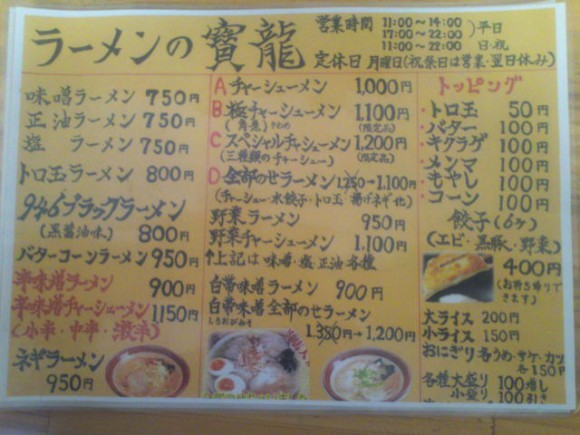 ラーメンの寳龍
営業時間 11:00〜14:00
17:00〜22:00 平日
11:00〜22:00 日・祝
定休日 月曜日(祝祭日は営業・翌日休み)
味噌ラーメン 750円
正油ラーメン 750円
塩ラーメン 750円
トロ玉ラーメン 800円
946ブラックラーメン
(黒醤油味) 800円
バターコーンラーメン 950円
辛味噌ラーメン 900円
辛味噌チャーシューメン 1150円
(小辛・中辛・激辛)
ネギラーメン
950円
Aチャーシューメン 1,000円
B極チャーシューメン 1,100円
(角煮) きわめ (限定品)
Cスペシャルチャーシューメン 1,200円
(三種類のチャーシュー) (限定品)
D全部のせラーメン 1,250→1,100円
(チャーシュー・水餃子・トロ玉・揚げネギ 他)
野菜ラーメン 950円
野菜チャーシューメン 1,100円
↑上記は味噌・塩・正油各種
白帯味噌ラーメン 900円
白帯味噌全部のせラーメン
しろおびみそ
1,380円→1,200円
トッピング
・トロ玉 50円
・バター 100円
・キクラゲ 100円
・メンマ 100円
・もやし 100円
・コーン 100円
餃子(6ヶ)
(エビ・黒豚・野菜)
400円
(お持ち帰りできます)
大ライス 200円
小ライス 150円
おにぎり各うめ・サケ・カツ
各150円
各種大盛り 100増し
小盛り 100引き